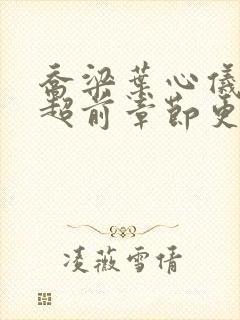 乔梁叶心仪
超前章节更
凌薇雪倩